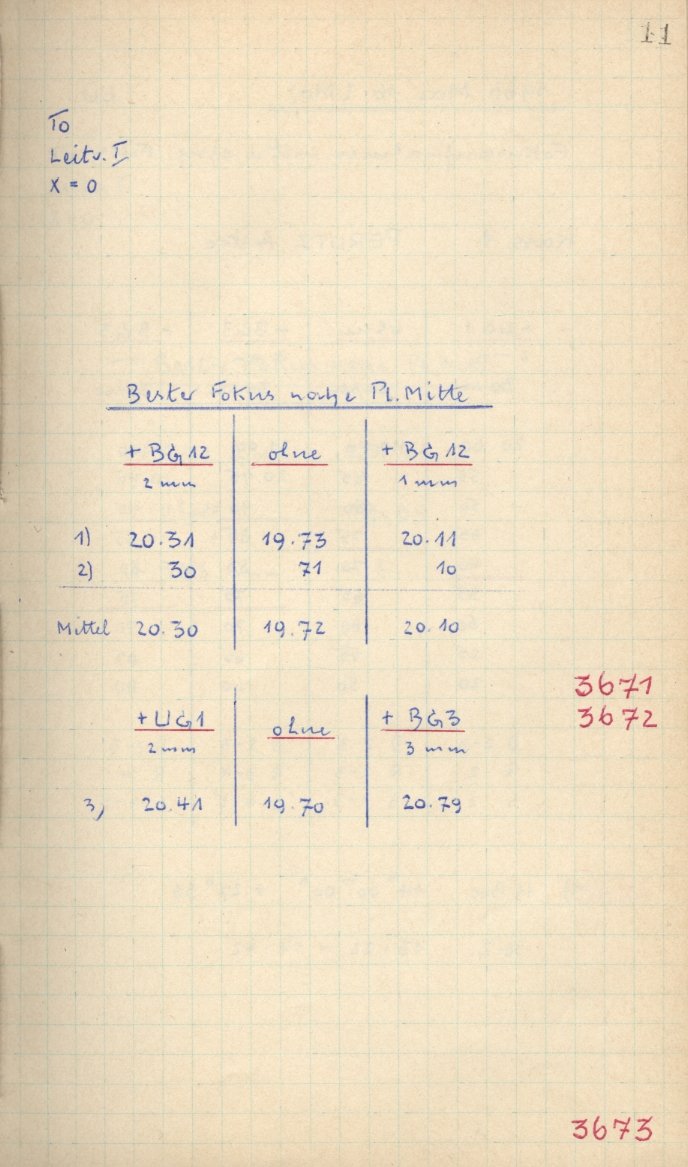 11
To
Leitv. I
X = 0
Bester Fokus nahe Pl. Mitte
+ BG12 ohne + BG12
2 mm 1 mm
1) 20.31 19.73 20.11
2) 30 71 10
Mittel 20.30 19.72 20.10
3671
+ UG1 ohne + BG3 3672
2 mm 3 mm
3) 20.41 19.70 20.79
3673